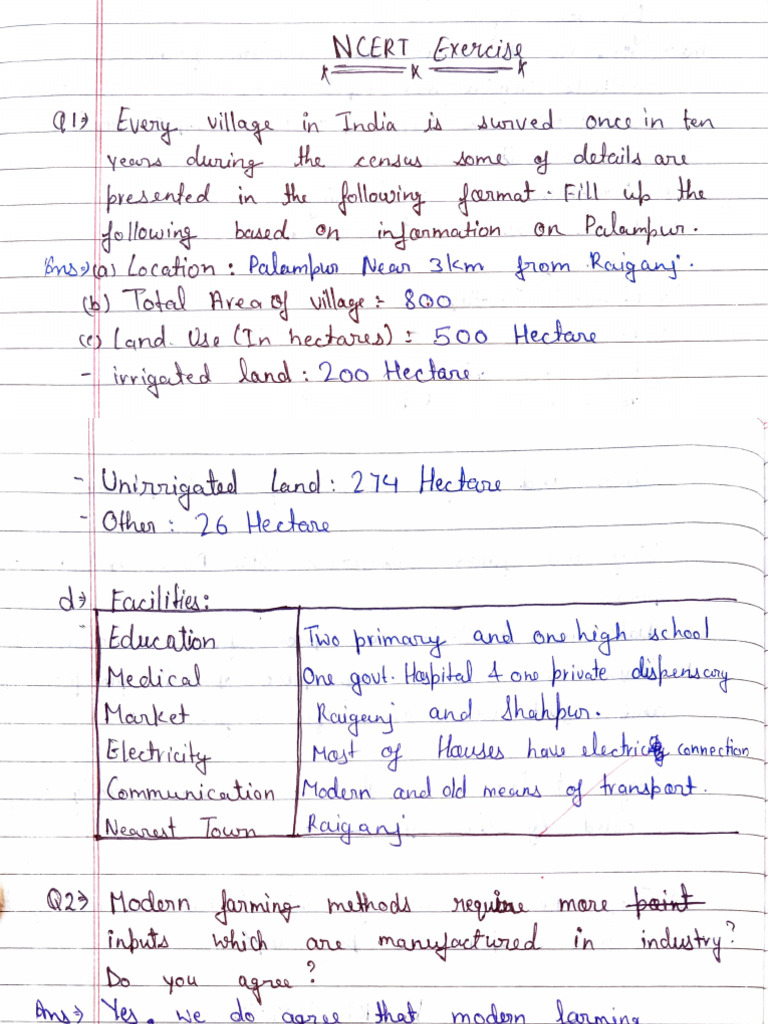 NCERT Exercise
Q1⇒ Every village in India is surved once in ten
years during the census some of details are
presented in the following format. Fill up the
following based on information on Palampur.
Ans:⇒ (a) Location : Palampur Near 3km from Raiganj.
(b) Total Area of village :- 800
(c) Land Use (In hectares) :- 500 Hectare
- irrigated land : 200 Hectare.
- Unirrigated Land : 274 Hectare
- Other : 26 Hectare
d⇒ Facilities:
Education Two primary and one high school
Medical One govt. Hospital & one private dispensary
Market Raiganj and Shahpur.
Electricity Most of Houses have electric connection
Communication Modern and old means of transport.
Nearest Town Raiganj
Q2⇒ Modern farming methods require more point
inputs which are manufactured in industry?
Do you agree?
Ans⇒ Yes, we do agree that modern farming